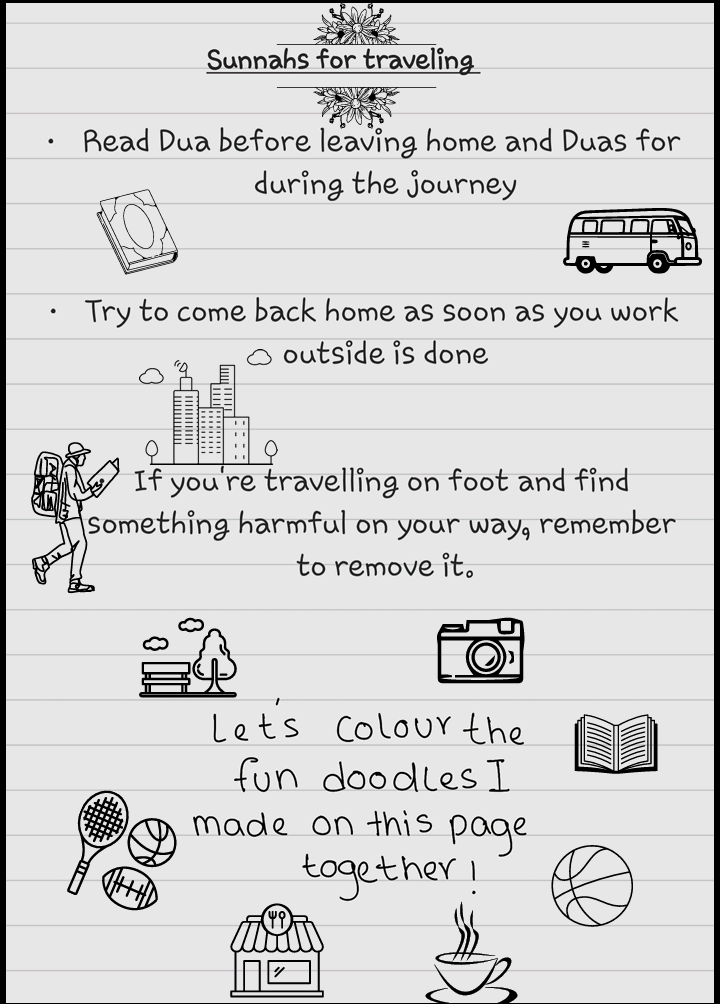 Sunnahs for traveling
• Read Dua before leaving home and Duas for
during the journey
• Try to come back home as soon as you work
outside is done
If you're travelling on foot and find
something harmful on your way, remember
to remove it.
Let's colour the
fun doodles I
made on this page
together!